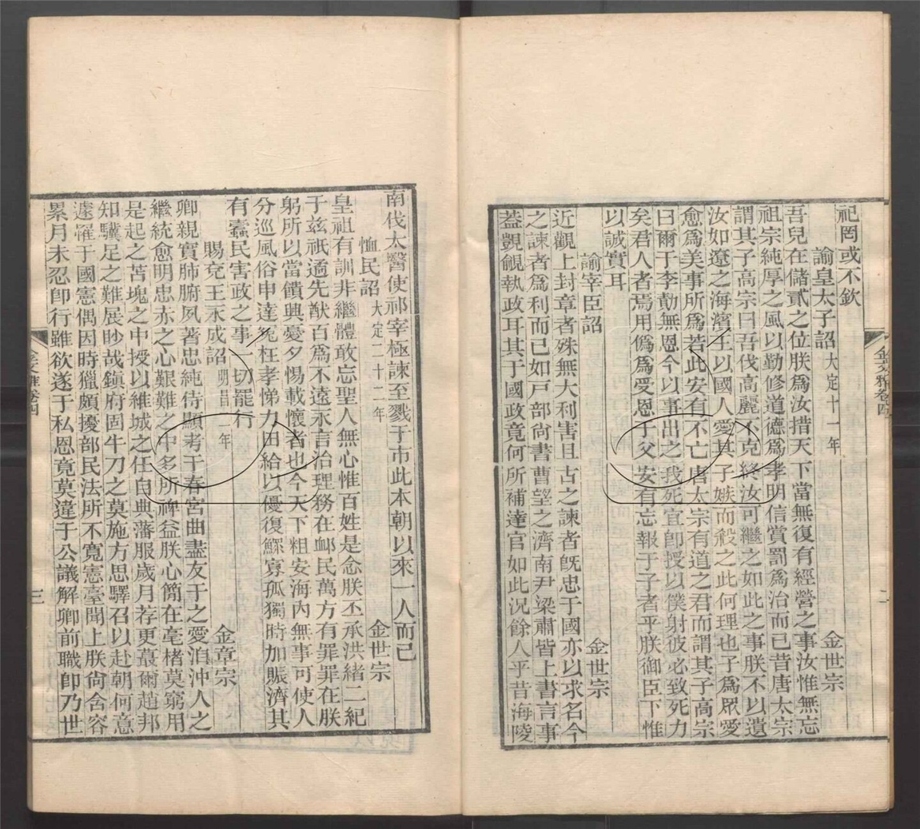 祀罔或不欽
諭皇太子詔大定十一年 金世宗
吾兒在儲貳之位朕爲汝措天下當無復有經營之事汝惟無忘
祖宗純厚之風以勤修道德爲孝明信賞罰爲治而已昔唐太宗
謂其子高宗曰吾伐高麗不克終汝可繼之如此之事朕不以遺
汝如遼之海濱王以國人愛其子嫉而殺之此何理也子爲眾愛
愈爲美事所爲若此安有不亡唐太宗有道之君而謂其子高宗
曰爾于李勣無恩今以事出之我死宜卽授以僕射彼必致死力
矣君人者焉用僞爲受恩于父安有忘報于子者乎朕御臣下惟
以誠實耳
諭宰臣詔 金世宗
近觀上封章者殊無大利害且古之諫者旣忠于國亦以求名今
之諫者爲利而已如戶部尙書曹望之濟南尹梁肅皆上書言事
葢覬覦執政耳其于國政竟何所補達官如此況餘人乎昔海陵
金文雅卷四 二
南伐太醫使祁宰極諫至戮于市此本朝以來一人而已
恤民詔大定二十二年 金世宗
皇祖有訓非繼體敢忘聖人無心惟百姓是念朕丕承洪緒二紀
于兹祇遹先猷百爲不遠永言治理務在卹民萬方有罪罪在朕
躬所以當饋興憂夕惕載懷者也今天下粗安海內無事可使人
分巡風俗申達冤枉孝悌力田給以優復鰥寡孤獨時加賑濟其
有蠹民害政之事一切罷行
賜兗王永成詔明昌二年 金章宗
卿親實肺腑夙著忠純侍顯考于春宮曲盡友于之愛洎沖人之
繼統愈明忠赤之心艱難之中多所裨益朕心簡在毫楮莫窮用
是起之苫塊之中授以維城之任自典藩服歲月荐更蕞爾趙邦
知驥足之難展眇哉鎮府固牛刀之莫施方思驛召以赴朝何意
遽罹于國憲偶因時獵頗擾部民法所不寬憲臺聞上朕尙含容
累月未忍卽行雖欲遂于私恩竟莫違于公議解卿前職卽乃世
金文雅卷四 三